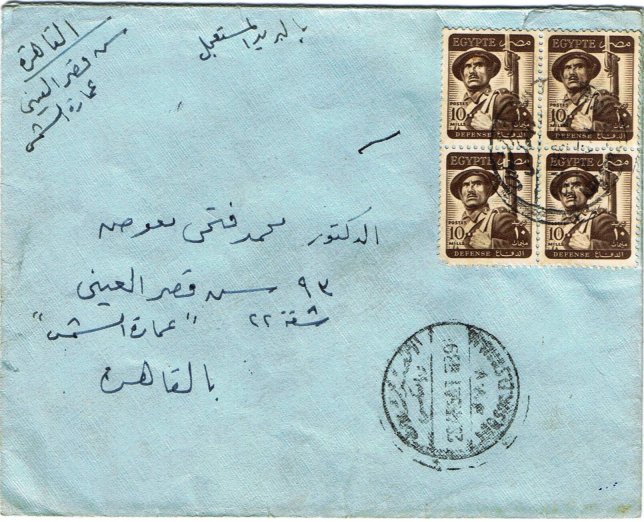 القاهرة
ش قصر العينى
عمارة الشمس
بالبريد المستعجل
EGYPTE مصر
POSTES
10 MILLS ١٠ مليمات
DEFENSE الدفاع
EGYPTE مصر
POSTES
10 MILLS ١٠ مليمات
DEFENSE الدفاع
EGYPTE مصر
POSTES
10 MILLS ١٠ مليمات
DEFENSE الدفاع
EGYPTE مصر
POSTES
10 MILLS ١٠ مليمات
DEFENSE الدفاع
الدكتور محمد فتحى معوض
٩٣ ش قصر العينى
شقة ٢٢ "عمارة الشمس"
بالقاهرة